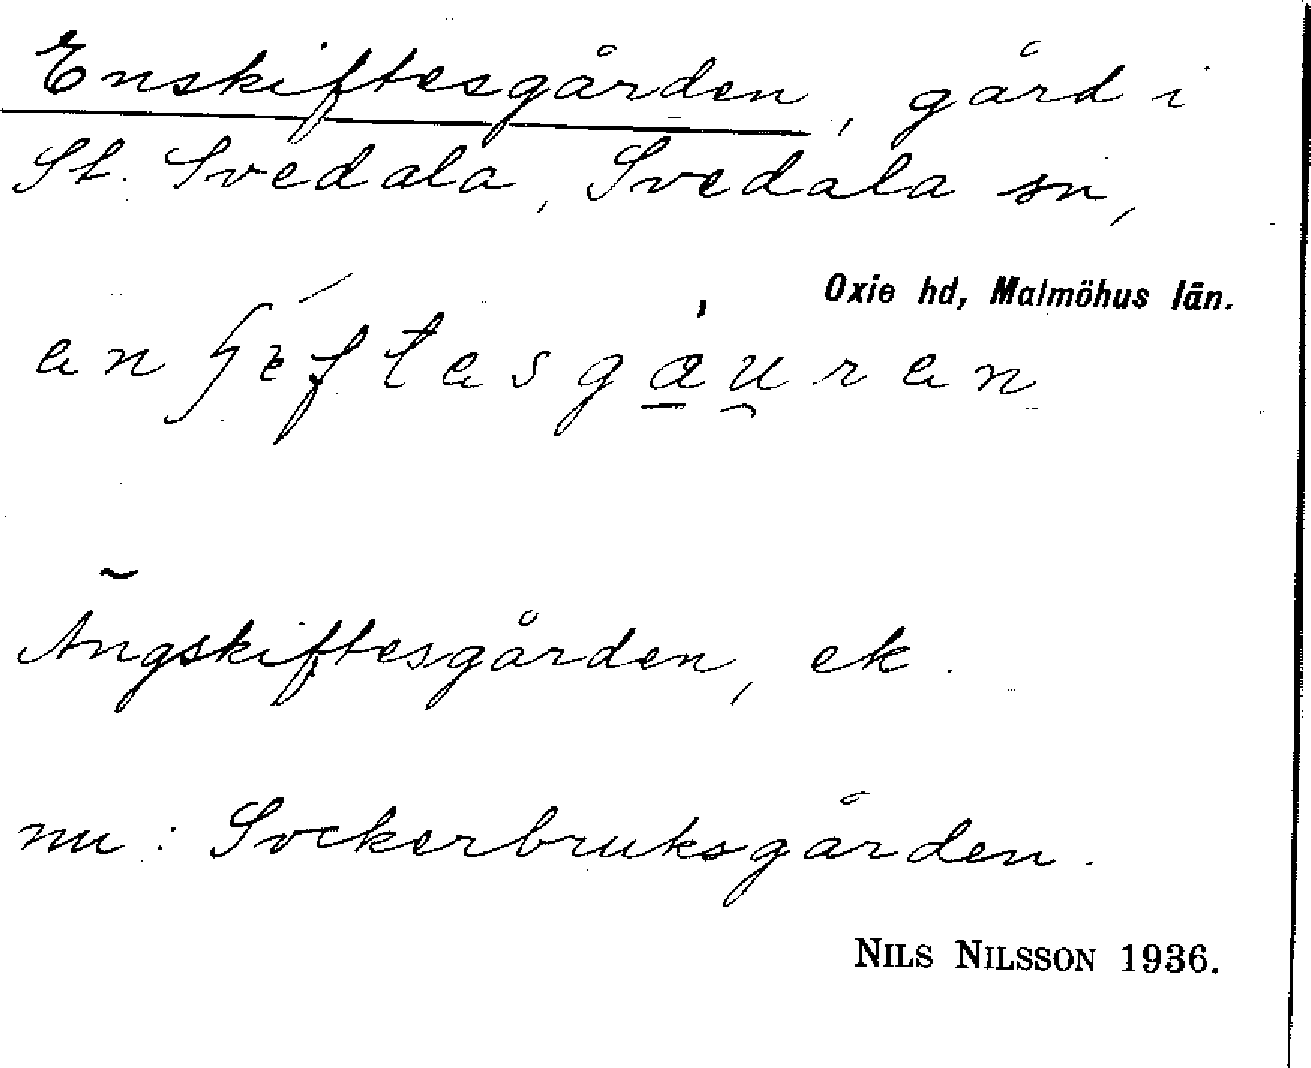 Enskiftesgården, gård i
St. Svedala, Svedala sn,
Oxie hd, Malmöhus län.
Ängskiftesgården, ek.
nu: Sockerbruksgården.
NILS NILSSON 1936.